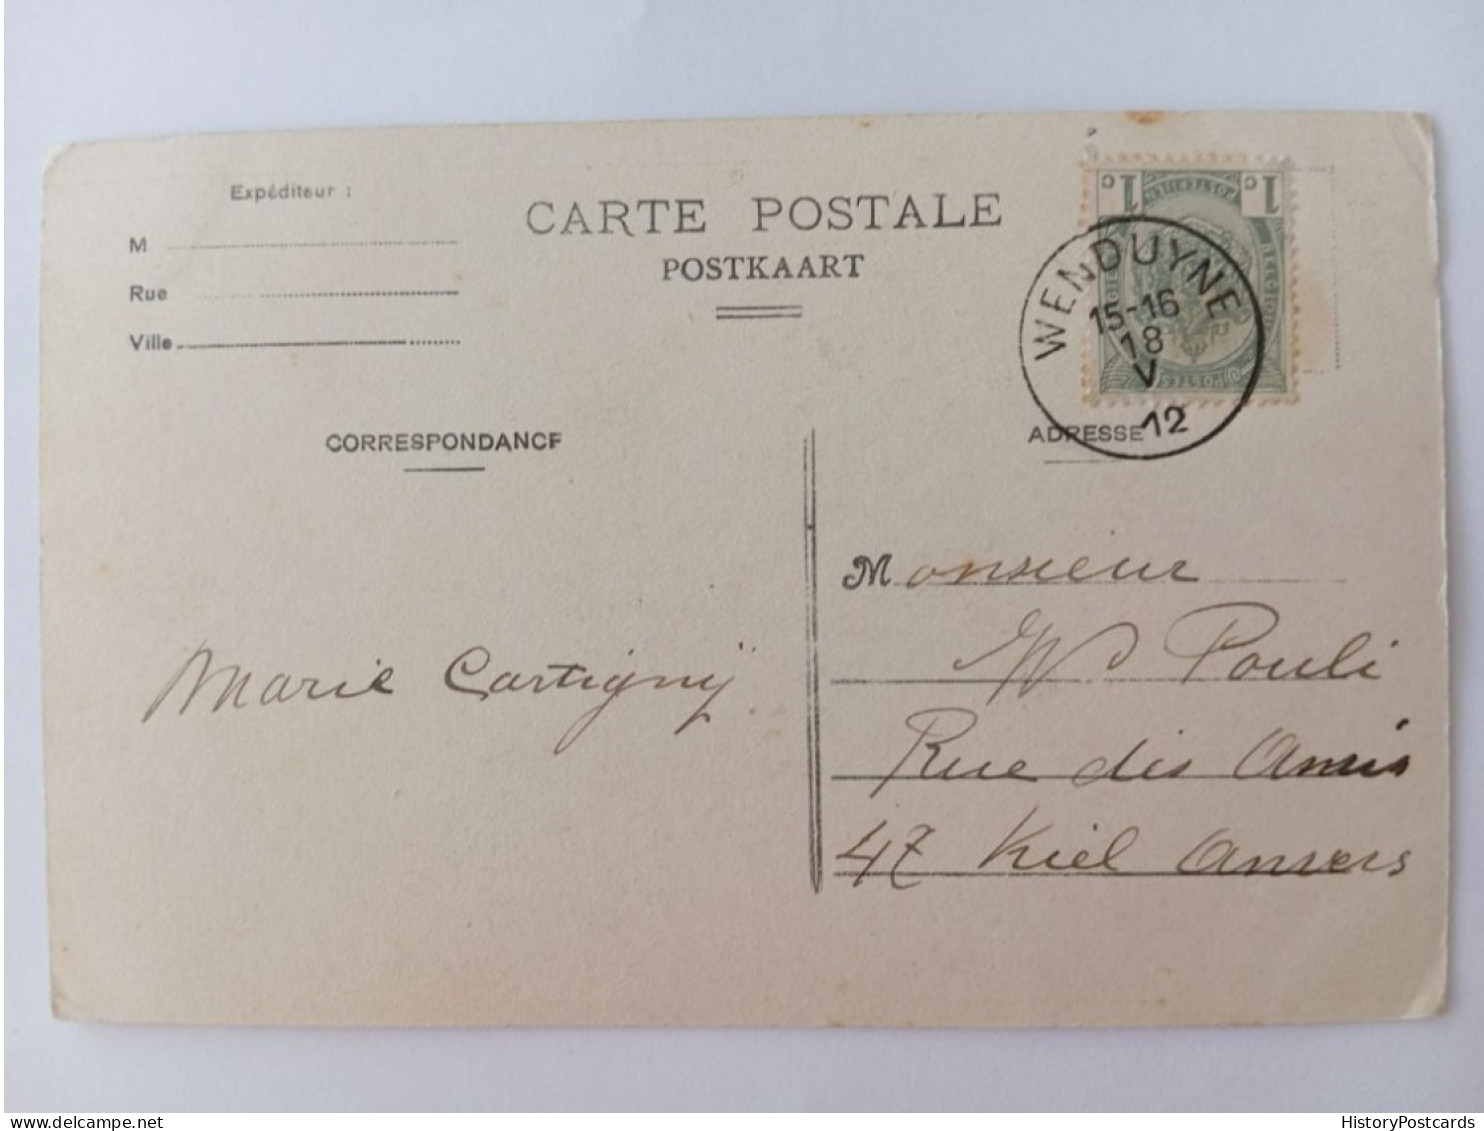 Expéditeur :
M
Rue
Ville
CARTE POSTALE
POSTKAART
1 c 1 c
WENDUYNE
15-16
18
V
12
CORRESPONDANCE
ADRESSE
Monsieur
W Pouli
Rue des Amis
47 Kiel Anvers
Marie Cartigny
HistoryPostcards